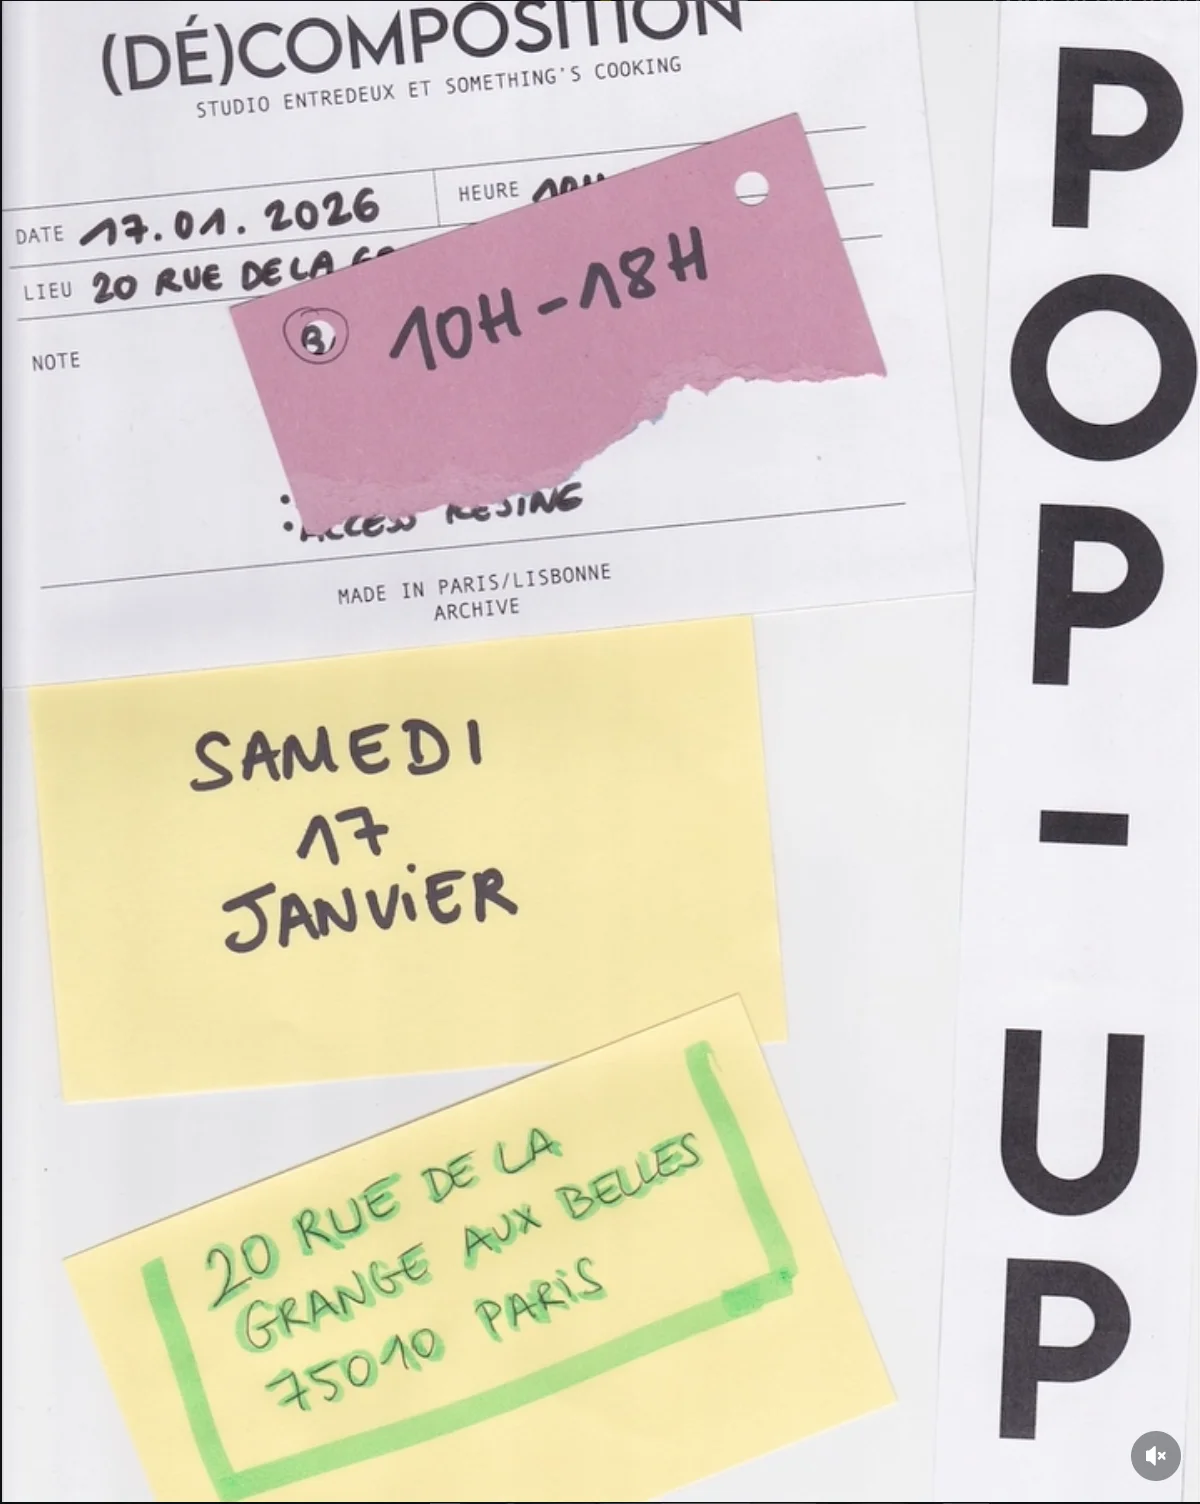 (DÉ)COMPOSITION
STUDIO ENTREDEUX ET SOMETHING'S COOKING
DATE 17.01.2026
HEURE 10H
LIEU 20 RUE DE LA
10H-18H
NOTE
MADE IN PARIS/LISBONNE
ARCHIVE
SAMEDI
17
JANViER
20 RUE DE LA
GRANGE AUX BELLES
75010 PARiS
POP-UP